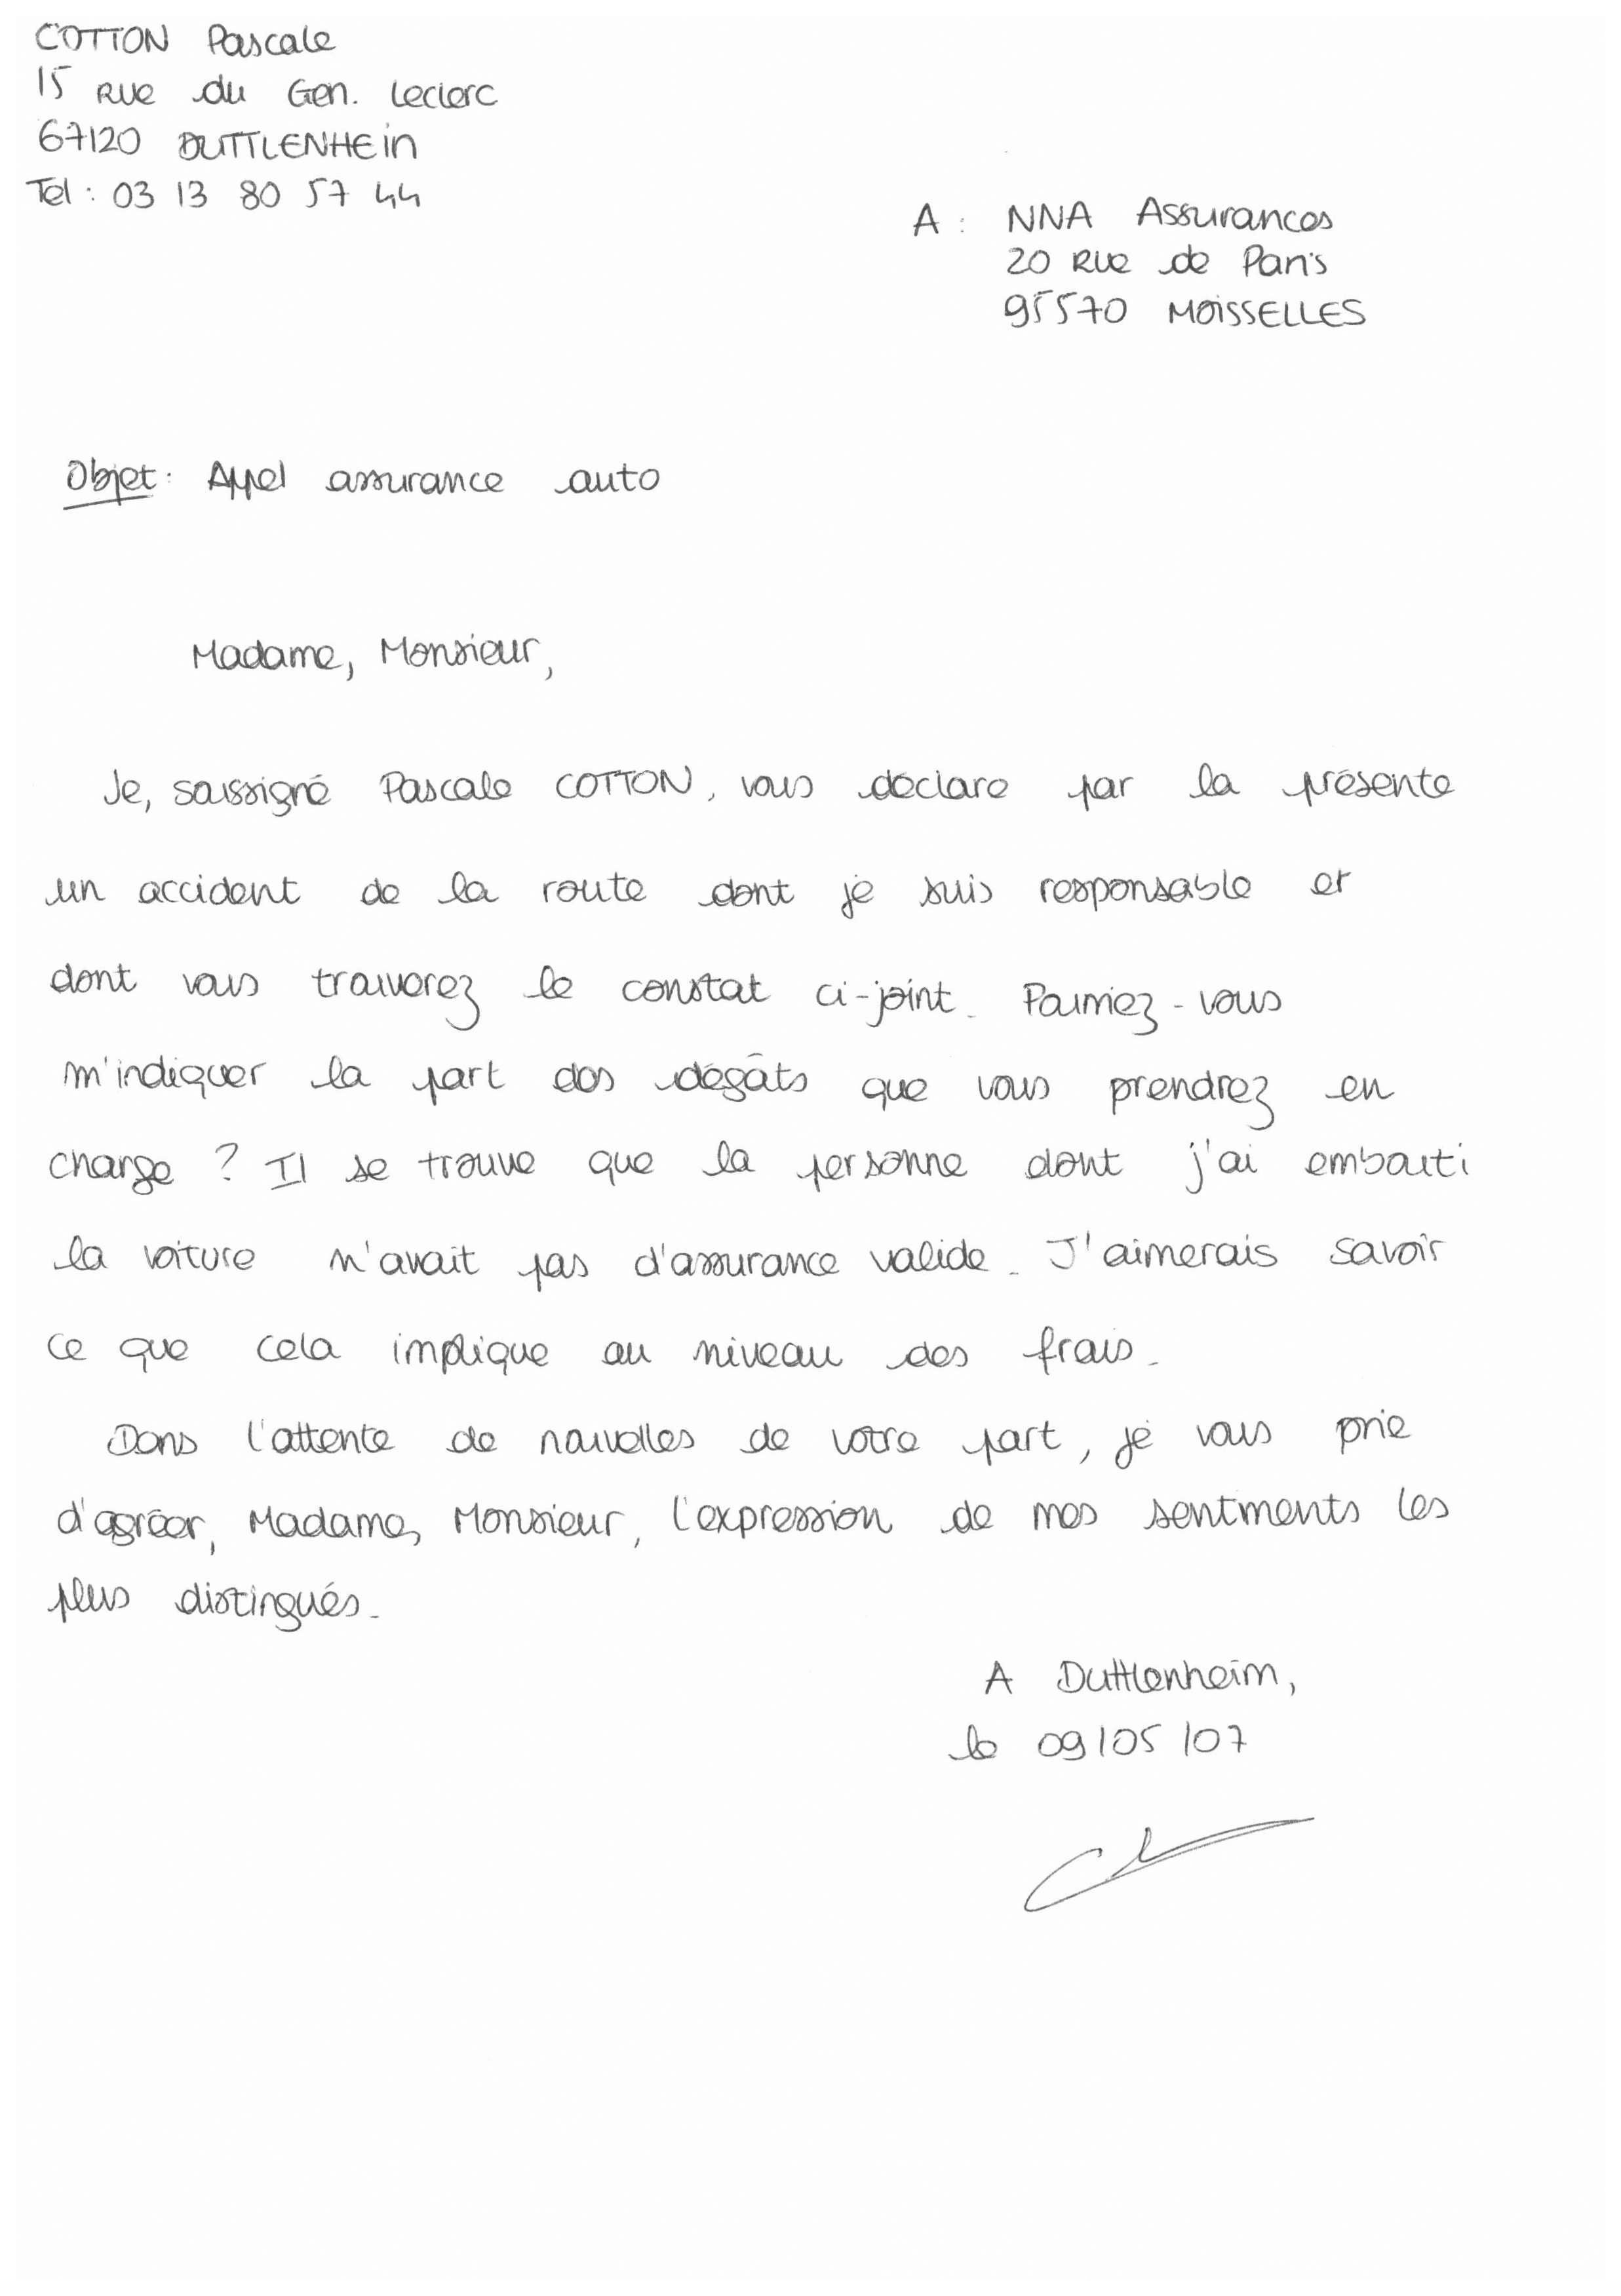 COTTON Pascale
15 Rue du Gen. Leclerc
67120 DUTTLENHEin
Tel : 03 13 80 57 44
A : NNA Assurances
20 Rue de Paris
95570 MOISSELLES
Objet : Appel assurance auto
Madame, Monsieur,
Je, soussigné Pascale COTTON, vous déclare par la présente
un accident de la route dont je suis responsable et
dont vous trouverez le constat ci-joint. Pourriez-vous
m'indiquer la part des dégâts que vous prendrez en
charge ? Il se trouve que la personne dont j'ai embouti
la voiture n'avait pas d'assurance valide. J'aimerais savoir
ce que cela implique au niveau des frais.
Dans l'attente de nouvelles de votre part, je vous prie
d'agréer, Madame, Monsieur, l'expression de mes sentiments les
plus distingués.
A Duttlenheim,
le 09/05/07